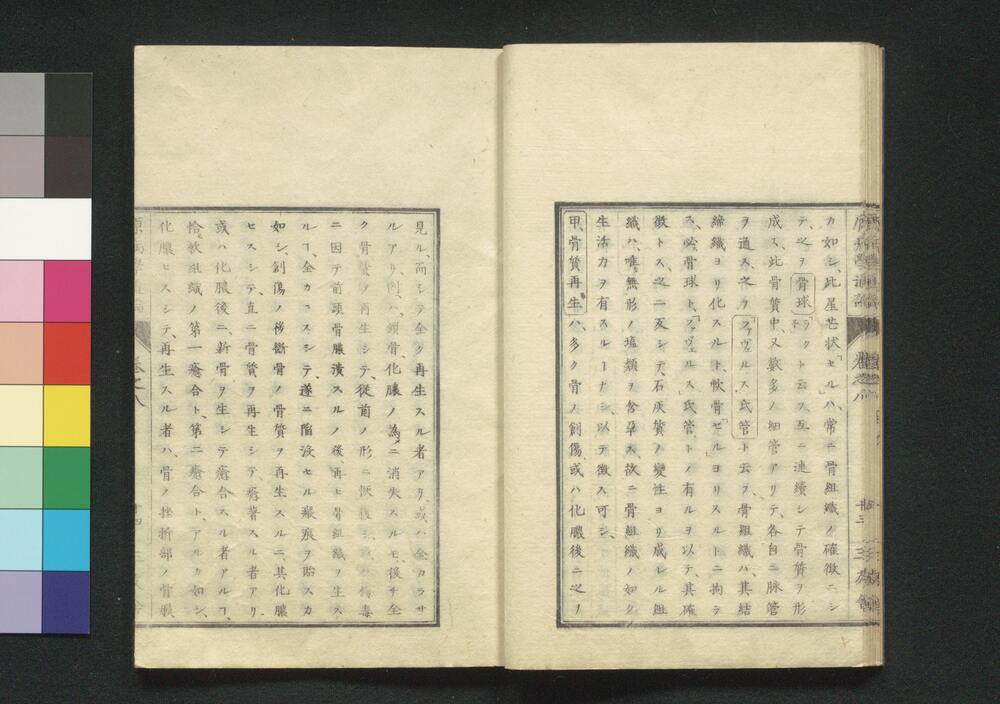 カ如シ、此星芒状「セル」ハ、常ニ骨組織ノ確徴ニシ
テ、之ヲ骨球ト云フ、互ニ連續シテ骨質ヲ形
成ス、此骨質中、又數多ノ細管アリテ、各自ニ脉管
ヲ通ス、之ヲ「ファヴェルス」氏管ト云フ、骨組織ハ、其結
締織ヨリ化スルト、軟骨「セル」ヨリスルトニ拘ラ
ス、必骨球ト、「ファヴェルス」氏管トノ有ルヲ以テ、其確
徴トス、之ニ亥シテ、石灰質ノ變性ヨリ成レル組
織ハ、唯無形ノ塩類ヲ含孕ス、故ニ骨組織ノ如ク
生活力ヲ有スルヿナシ、以テ徴ス可シ、
甲、骨質再生ハ、多ク骨ノ創傷或ハ化膿後ニ之ノ
見ル、而シテ全ク再生スル者アリ、或ハ全カラサ
ルアリ、則ハ、顎骨、化膿ノ為メニ消失スルモ、後チ全
ク骨質ヲ再生シテ、從前ノ形ニ恢復シ、或ハ梅毒
ニ因テ前頭骨膿潰スルノ後、再ヒ骨組織ヲ生ス
ルヿ、全カラスシテ、遂ニ陷沒セル瘢痕ヲ貽スカ
如シ、創傷ノ後斷骨ノ骨質ヲ再生スルニ、其化膿
セスシテ、直ニ骨質ヲ再生シテ、癒著スル者アリ、
或ハ化膿後ニ、新骨ヲ生シテ癒合スル者アルヿ、
恰モ軟組織ノ第一癒合ト、第二癒合ト、アルカ如シ、
化膿セスシテ、再生スル者ハ、骨ノ挫折部ノ骨膜
卷之八